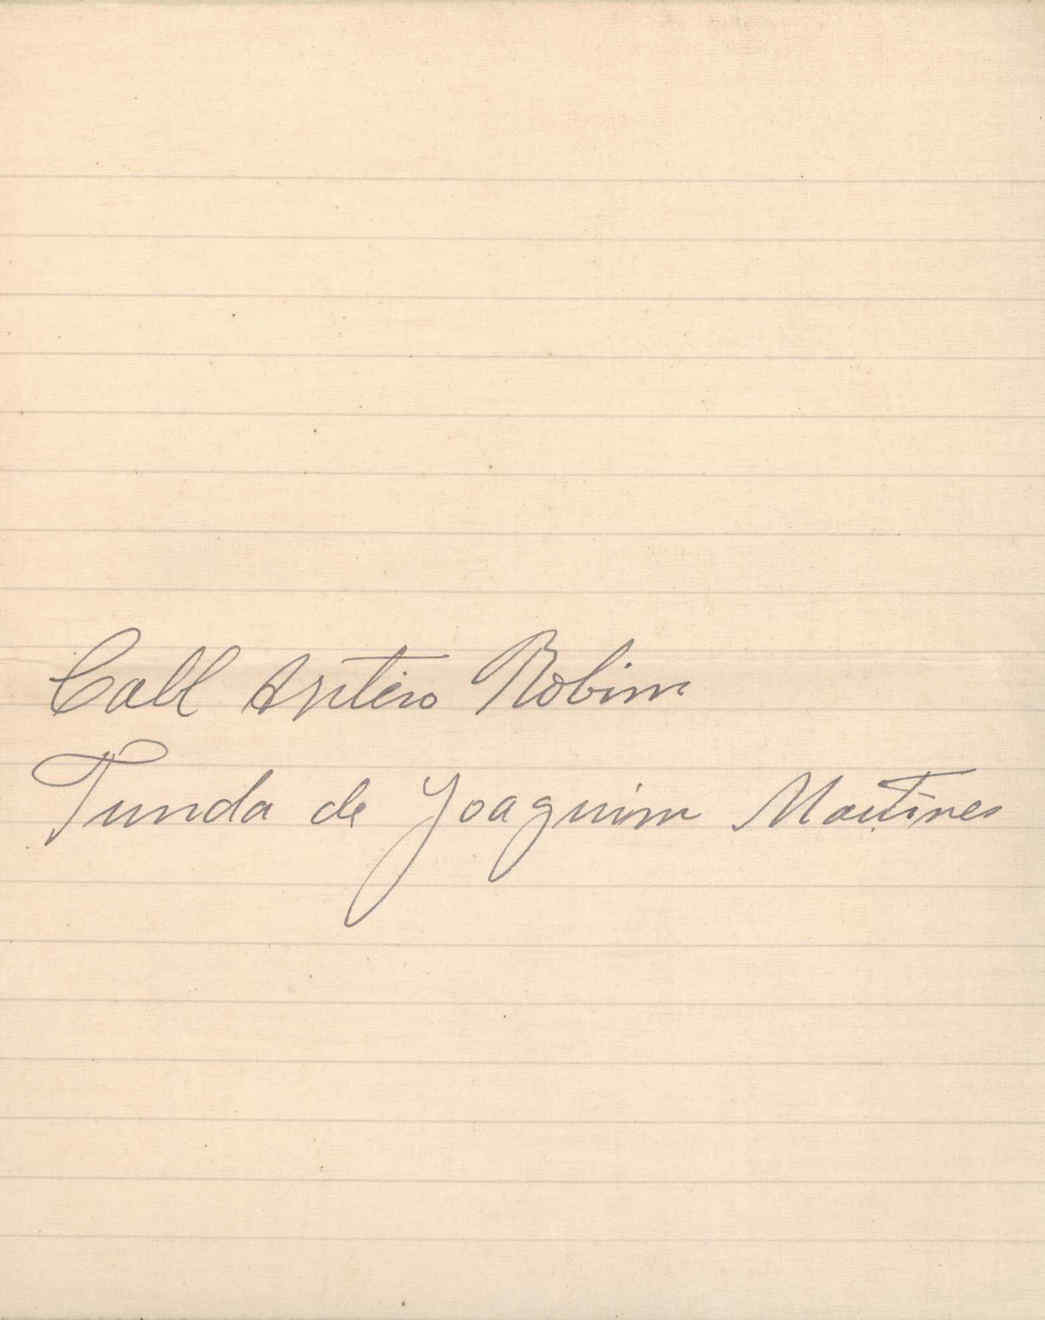 Call Artero Robim
Tunda de Joaquim Martines